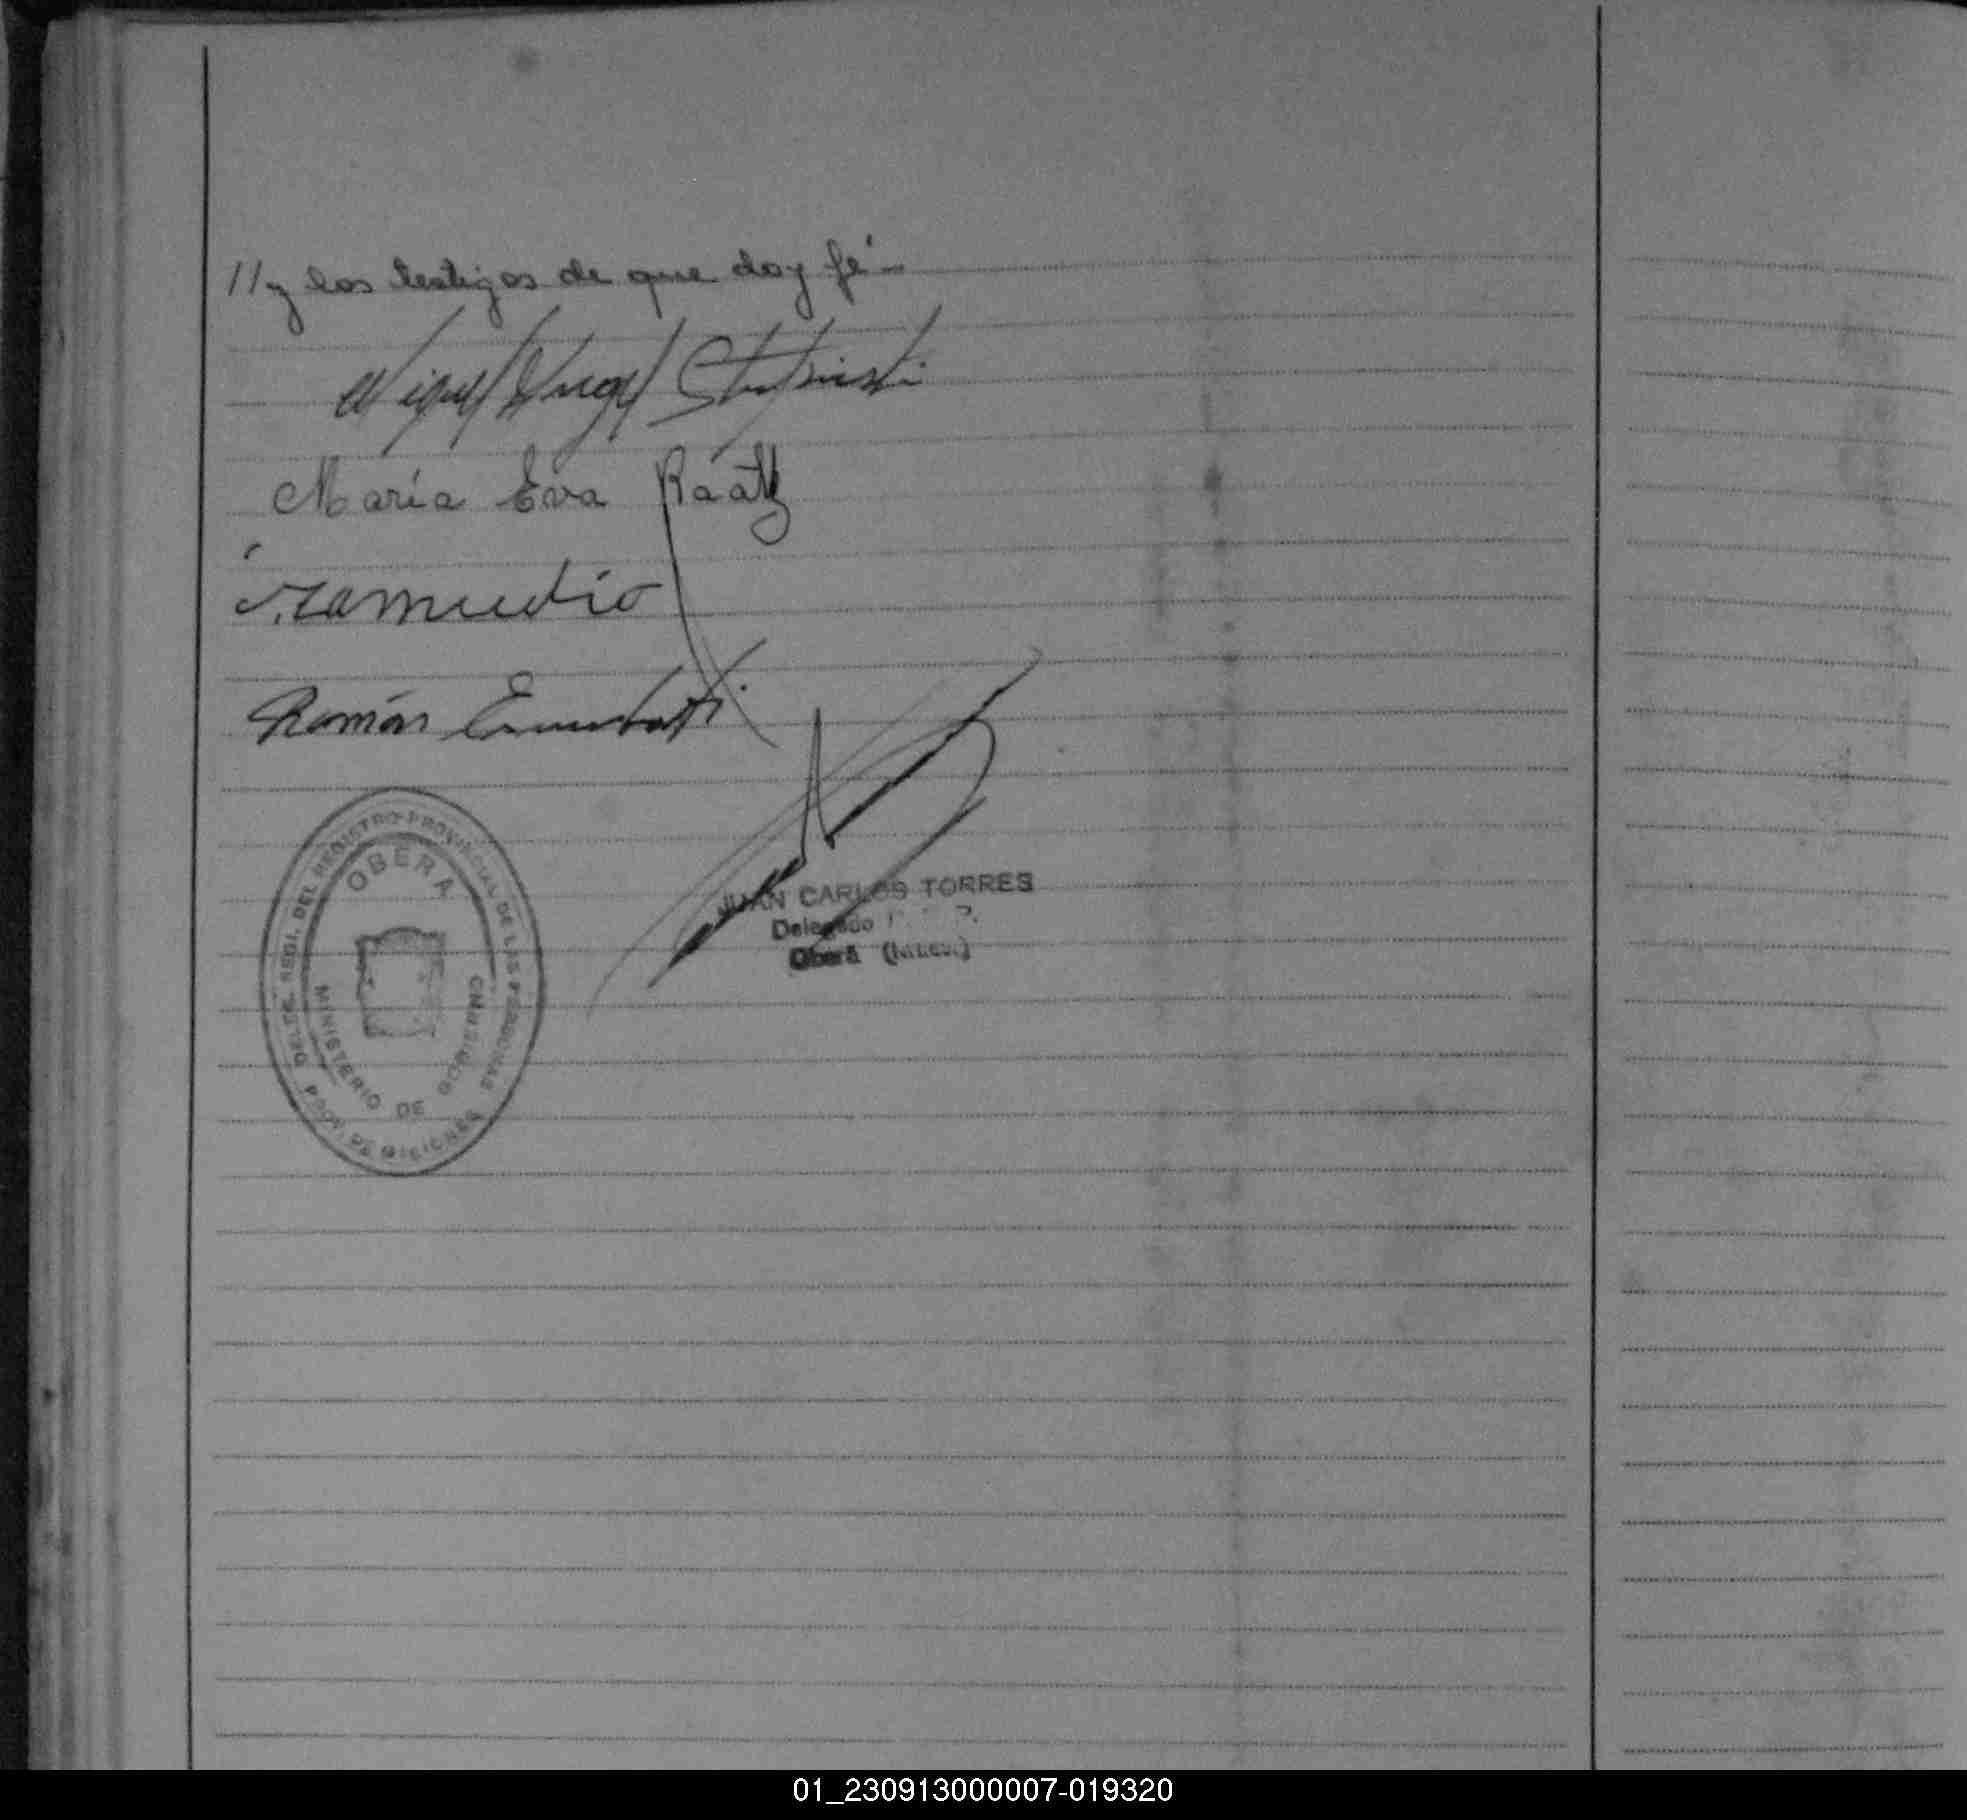 // y los testigos de que doy fé -
Miguel Angel
María Eva Raatz
Zamudio
Román
DELEG. SECI. DEL REGISTRO PROVINCIAL DE LAS PERSONAS
OBERA
MINISTERIO DE GOBIERNO
PROV. DE MISIONES
JUAN CARLOS TORRES
Delegado
Oberá
01_230913000007-019320